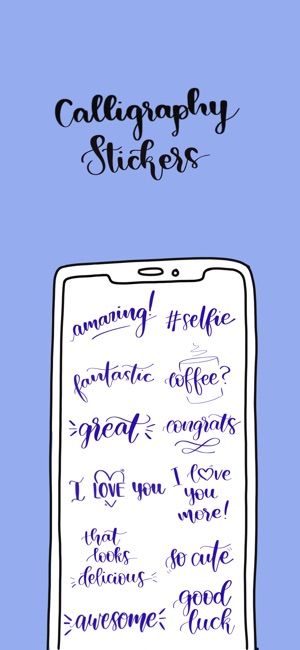 Calligraphy
Stickers
amazing!
#selfie
fantastic
coffee?
great
congrats
I LOVE you
I love
you
more!
that
looks
delicious
so cute
awesome
good
luck